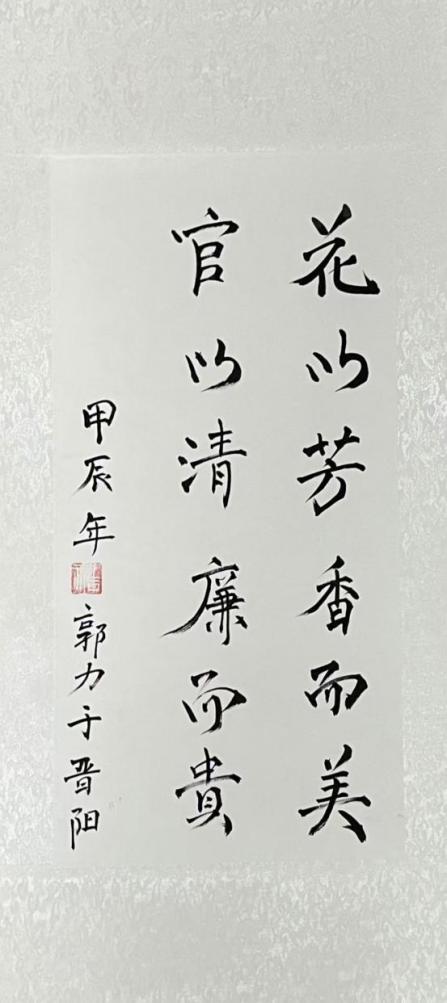 花以芳香而美
官以清廉而貴
甲辰年
郭力于晋阳